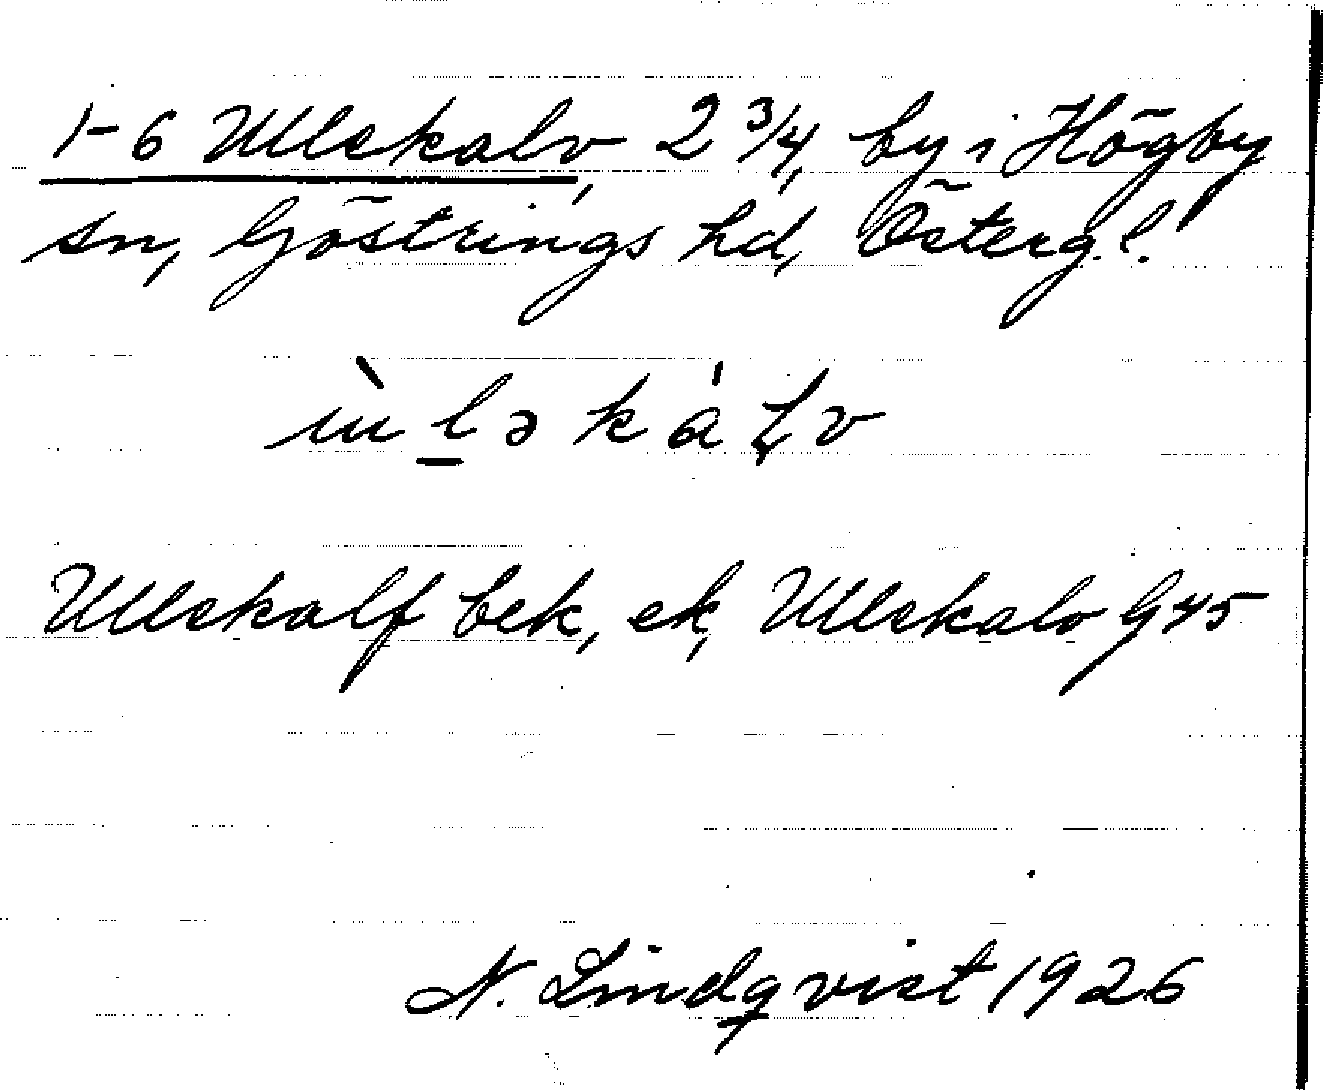 1-6 Ullskalv, 2 3/4, by i Högby
sn, Göstrings hd, Östergl.
ùl̲əkáļv
Ullskalf bek, ek, Ullskalv G45
N. Lindqvist 1926